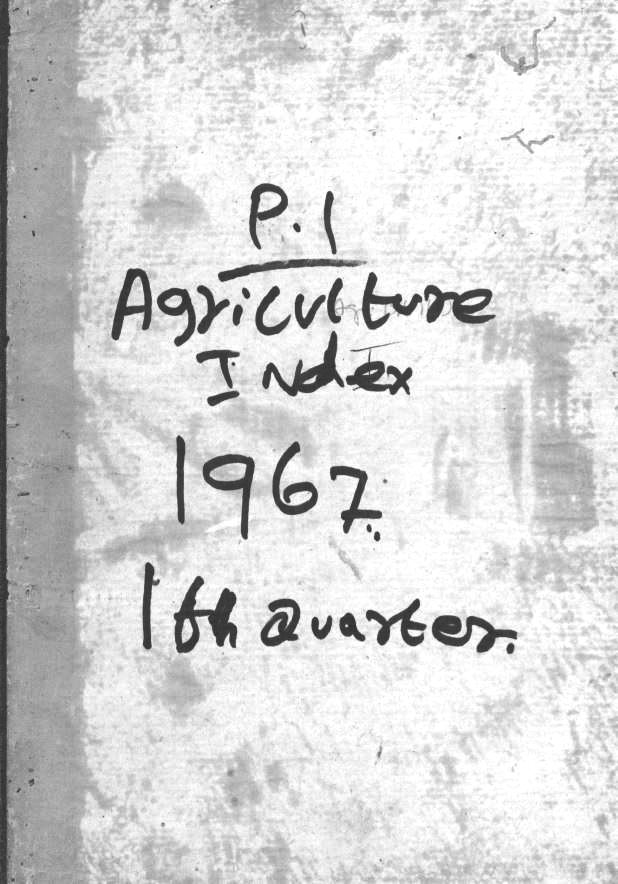 P.1
Agriculture
Index
1967.
1th Quarter.